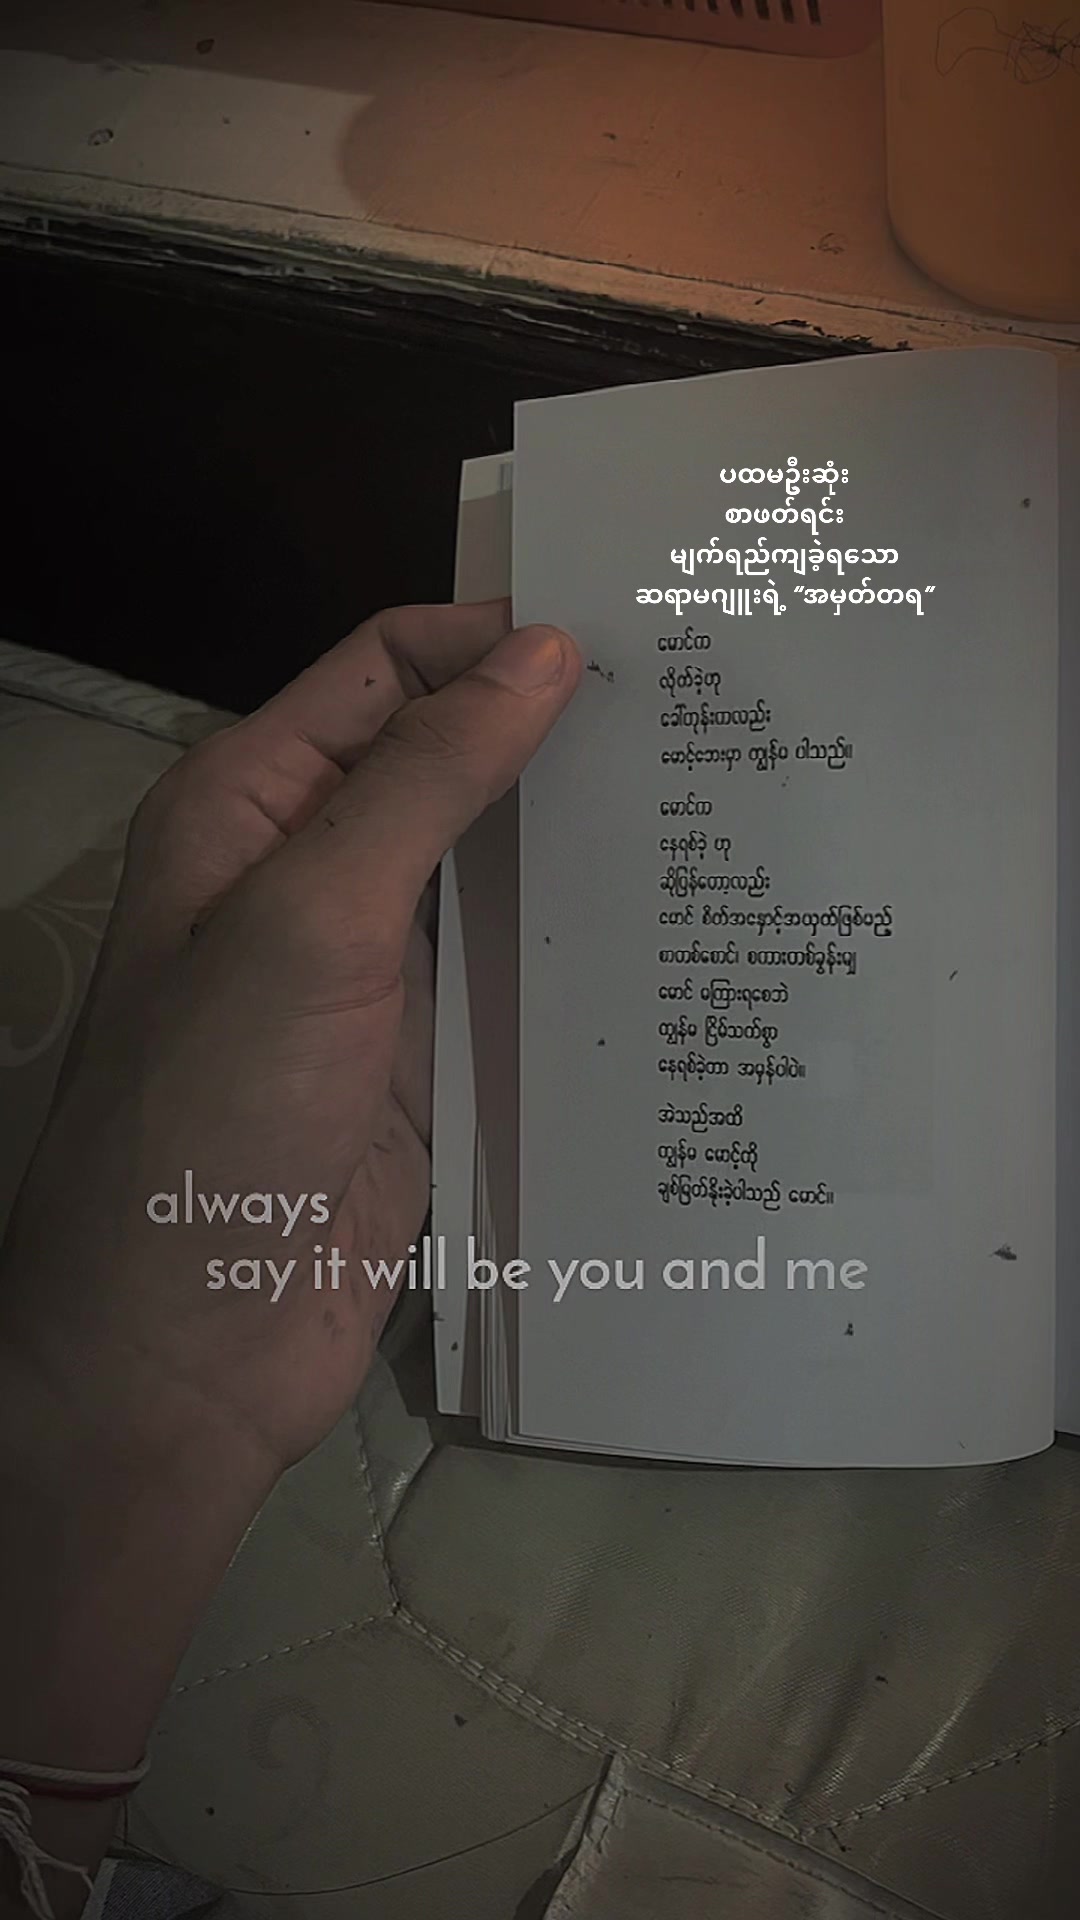 ပထမဦးဆုံး
စာဖတ်ရင်း
မျက်ရည်ကျခဲ့ရသော
ဆရာမဂျူးရဲ့ “အမှတ်တရ”
မောင်က
လိုက်ခဲ့ဟု
ခေါ်တုန်းကလည်း
မောင့်ဘေးမှာ ကျွန်မ ပါသည်။
မောင်က
နေရစ်ခဲ့ ဟု
ဆိုပြန်တော့လည်း
မောင် စိတ်အနှောင့်အယှက်ဖြစ်မည့်
စာတစ်စောင်၊ စကားတစ်ခွန်းမျှ
မောင် မကြားရစေဘဲ
ကျွန်မ ငြိမ်သက်စွာ
နေရစ်ခဲ့တာ အမှန်ပါပဲ။
အဲသည်အထိ
ကျွန်မ မောင့်ကို
ချစ်မြတ်နိုးခဲ့ပါသည် မောင်။
always
say it will be you and me